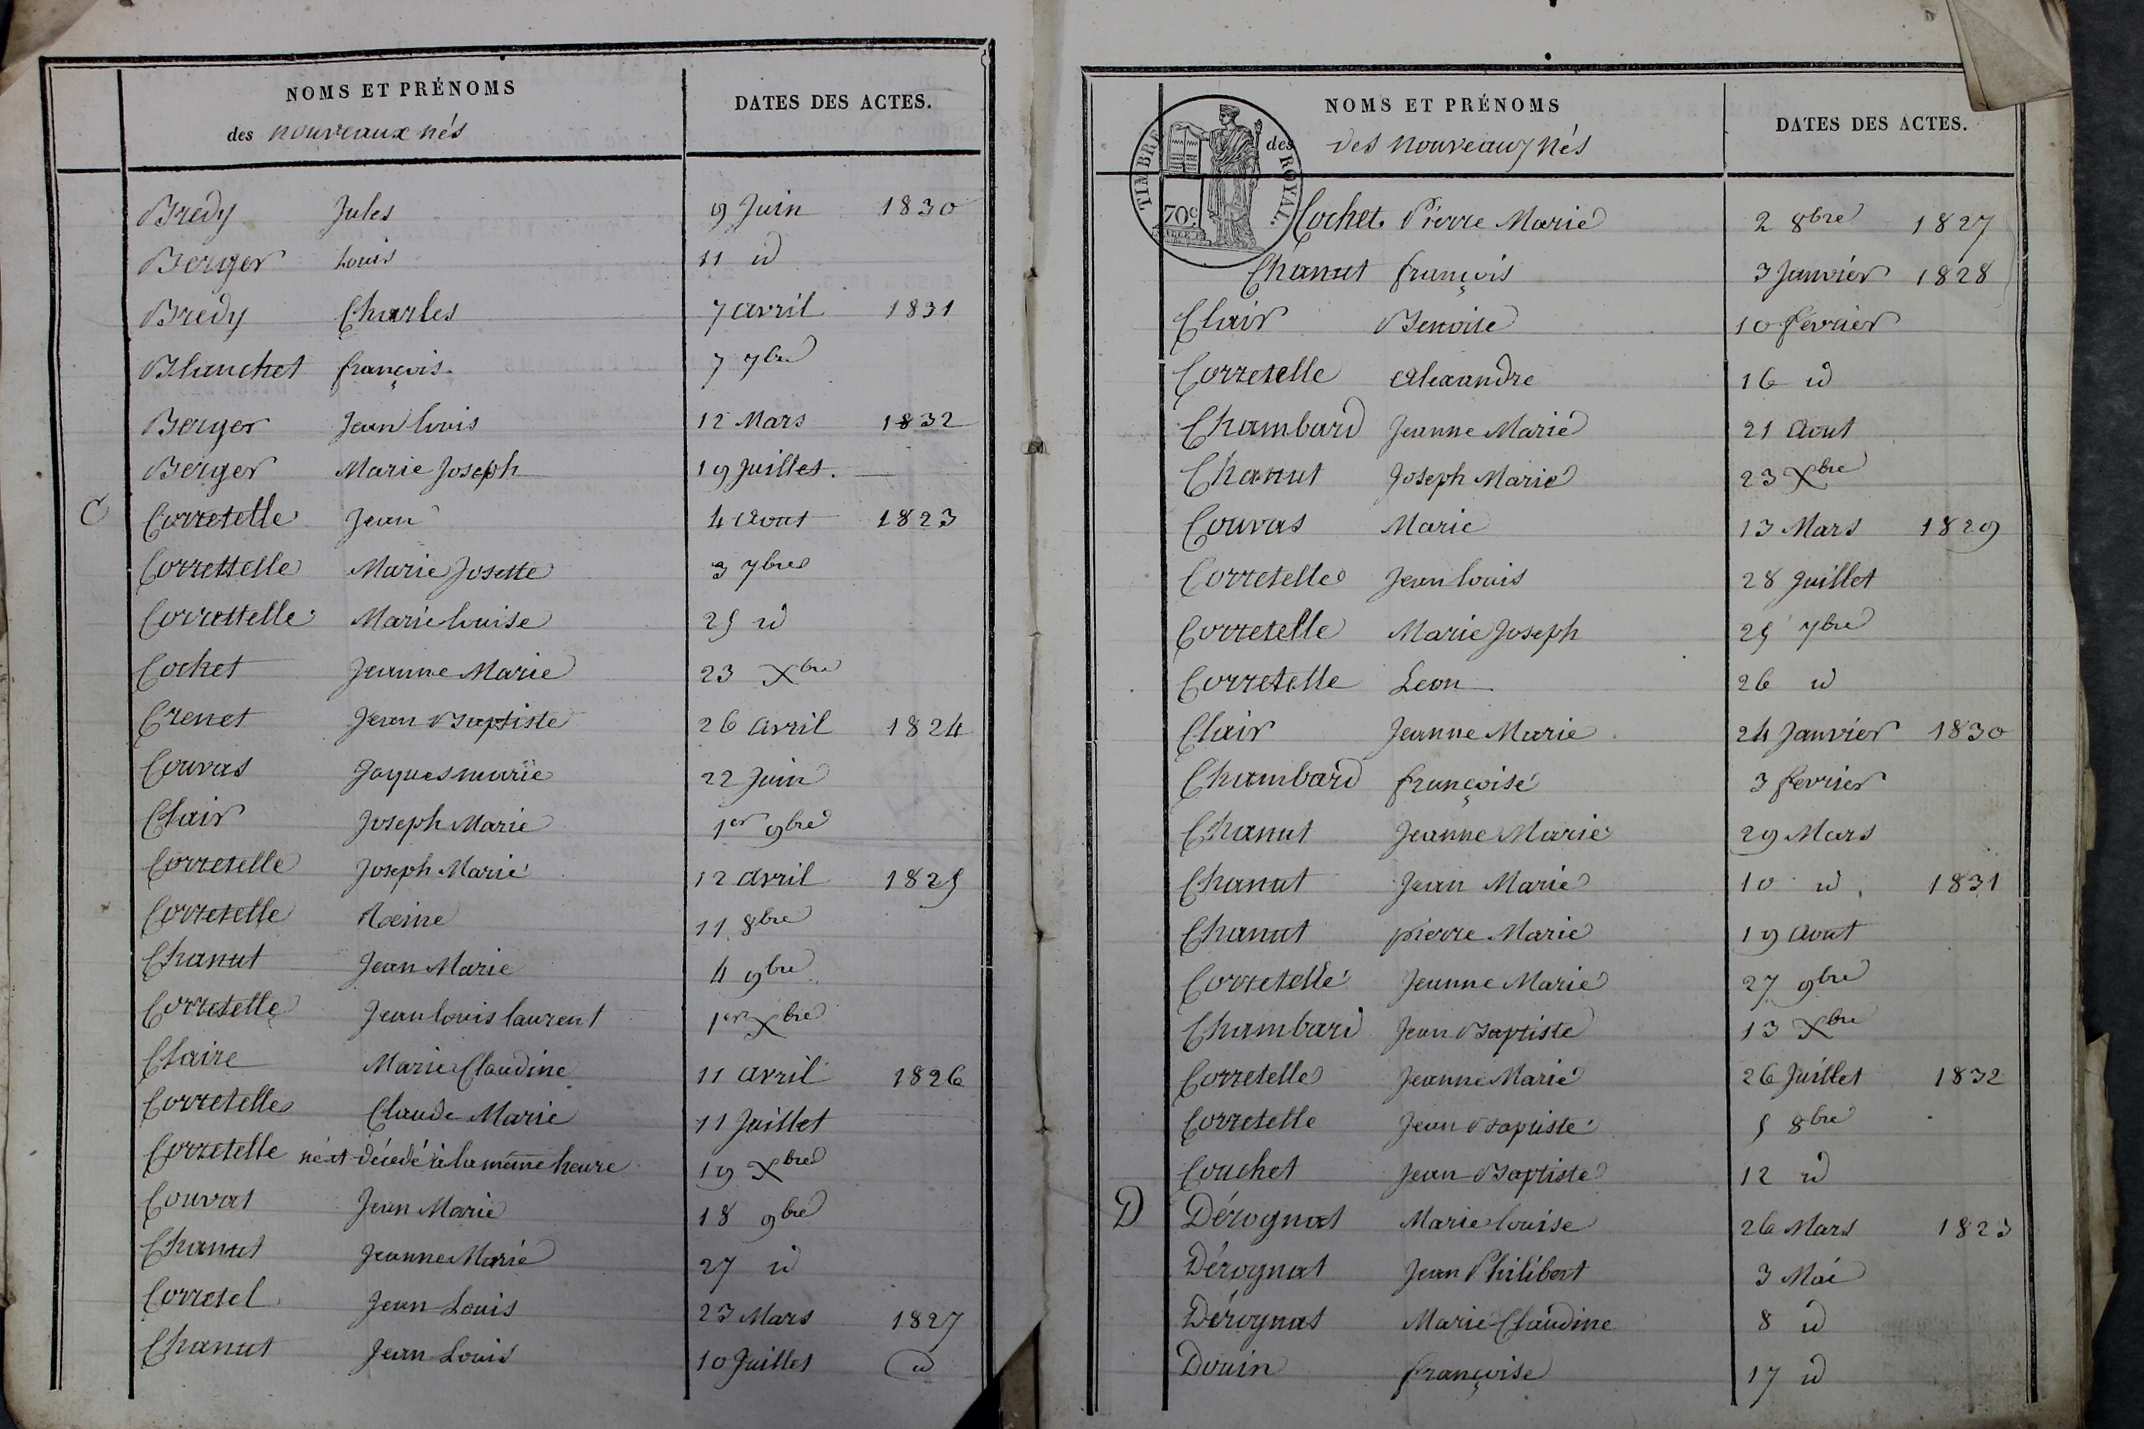 NOMS ET PRÉNOMS
des nouveaux nés
DATES DES ACTES.
Bredy Jules 9 Juin 1830
Berger Louis 11 id
Bredy Charles 7 avril 1831
Blanchet françois 7 7bre
Berger Jean louis 12 Mars 1832
Berger Marie Joseph 19 Juillet.
C Corretelle Jean 4 aout 1823
Correttelle Marie Josette 3 7bre
Correttelle Marie louise 25 id
Cochet Jeanne Marie 23 Xbre
Crenet Jean Baptiste 26 avril 1824
Couvas Jaques marie 22 Juin
Clair Joseph Marie 1er 9bre
Corretelle Joseph Marie 12 avril 1825
Corretelle Reine 11 8bre
Chanut Jean Marie 4 9bre
Corretelle Jean louis laurent 1er Xbre
Claire Marie Claudine 11 avril 1826
Corretelle Claude Marie 11 Juillet
Corretelle né et décédé à la même heure 19 Xbre
Couvat Jean Marie 18 9bre
Chanut Jeanne Marie 27 id
Corretel Jean Louis 23 Mars 1827
Chanut Jean Louis 10 Juillet id
NOMS ET PRÉNOMS
des
des nouveaux nés
DATES DES ACTES.
TIMBRE ROYAL.
70c
Cochet Pierre Marie 2 8bre 1827
Chanut françois 3 Janvier 1828
Clair Benoite 10 fevrier
Corretelle Alexandre 16 id
Chambard Jeanne Marie 21 Aout
Chanut Joseph Marie 23 Xbre
Couvas Marie 13 Mars 1829
Corretelle Jean louis 28 Juillet
Corretelle Marie Joseph 25 7bre
Corretelle Leon 26 id
Clair Jeanne Marie 24 Janvier 1830
Chambard françoise 3 fevrier
Chanut Jeanne Marie 29 Mars
Chanut Jean Marie 10 id 1831
Chanut pierre Marie 19 Aout
Corretelle Jeanne Marie 27 9bre
Chambard Jean Baptiste 13 Xbre
Corretelle Jeanne Marie 26 Juillet 1832
Corretelle Jean Baptiste 5 8bre
Couchet Jean Baptiste 12 id
D Dérognat Marie louise 26 Mars 1823
Dérognat Jean Philibert 3 Mai
Dérognat Marie Claudine 8 id
Douin françoise 17 id